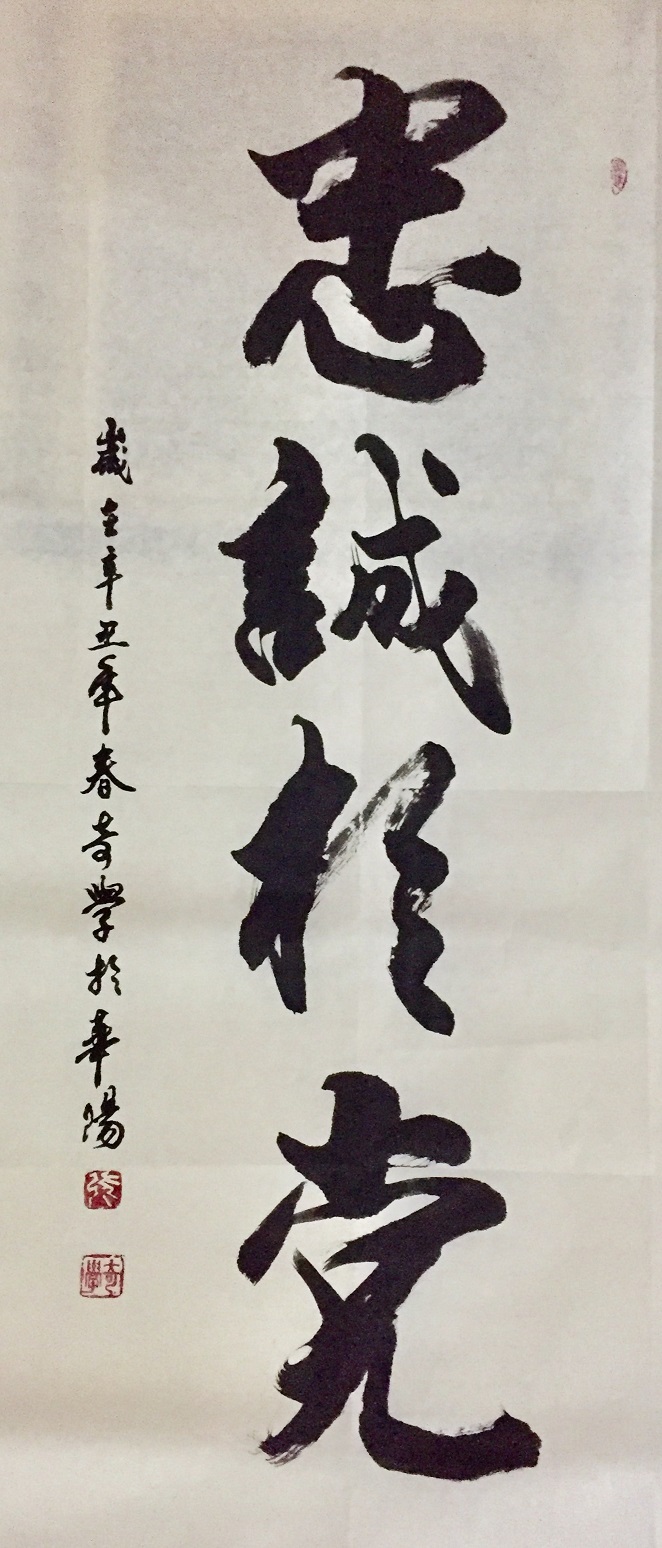 忠誠於党
歲在辛丑年春奇學於華陽
奇學